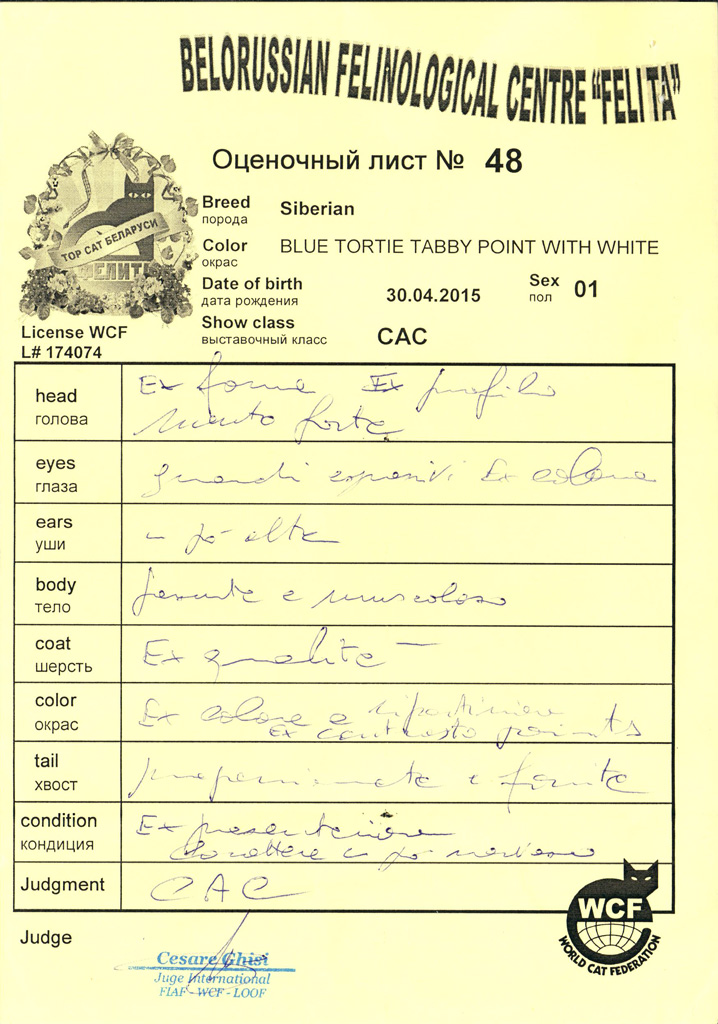 BELORUSSIAN FELINOLOGICAL CENTRE “FELITA”
Оценочный лист № 48
Breed Siberian
порода
Color BLUE TORTIE TABBY POINT WITH WHITE
окрас
Date of birth 30.04.2015 Sex 01
дата рождения пол
Show class CAC
выставочный класс
TOP CAT БЕЛАРУСИ
ФЕЛИТА
License WCF
L# 174074
head Ex forma Ex profilo
голова mento forte
eyes grandi espressivi Ex colore
глаза
ears pò alte
уши
body pesante e muscoloso
тело
coat Ex qualità
шерсть
color Ex colore e ripartizione
окрас Ex contrasto points
tail proporzionata e fornita
хвост
condition Ex presentazione
кондиция carattere un pò nervoso
Judgment CAC
Judge
Cesare Ghisi
Juge International
FIAF - WCF - LOOF
WCF
WORLD CAT FEDERATION